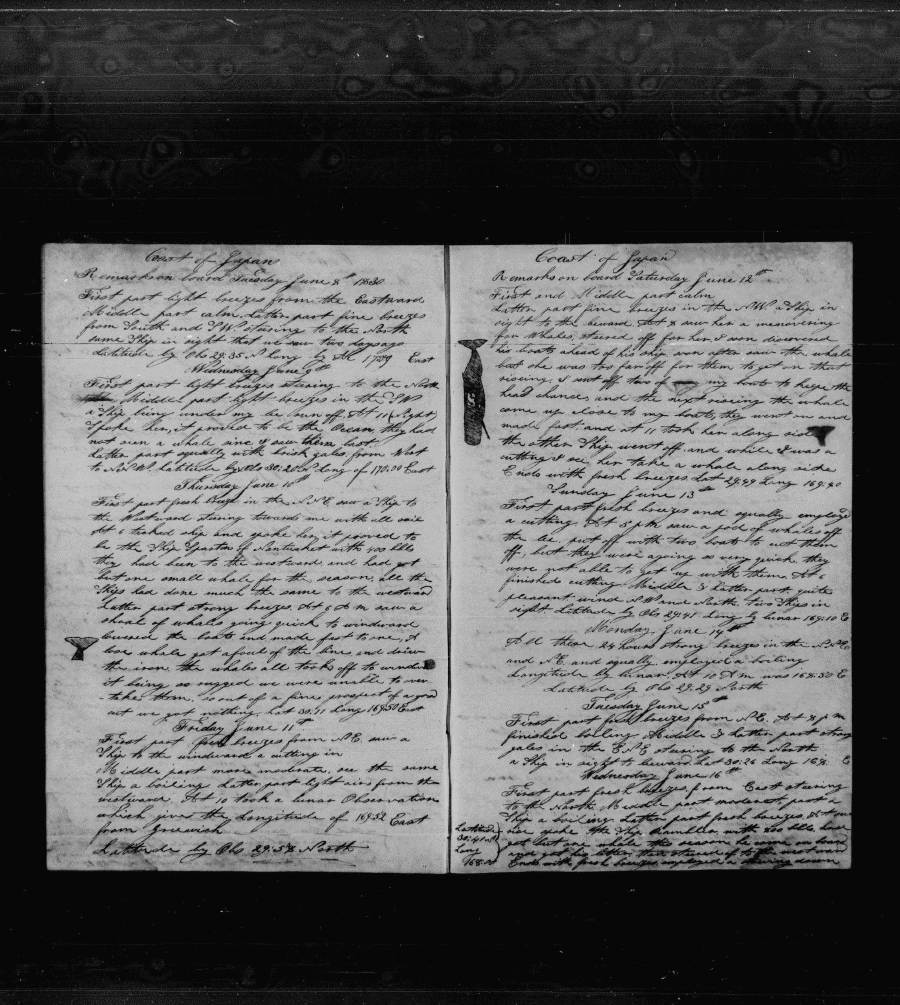 Coast of Japan
Remarks on board Tuesday June 8th 1830
First part light breezes from the Eastward
Middle part calm, Latter part fine breezes
from South and SW stearing to the North
same Ship in sight that we saw two days ago
Latitude by Obs 29:35 N Long by East
Wednesday June 9th
First part light breezes stearing to the North
Middle part light breezes in the SW
a Ship being under my lee down off At 11 (Night)
Spoke her, it proved to be the Ocean, they had
not seen a whale since I saw them last
Latter part squally with brisk gales from West
to Latitude by Obs 30:20 N Long of 170:00 East
Thursday June 10th
First part fresh in the NNE saw a Ship to
the Westward stearing towards me with all sail
At 6 tacked ship and spoke her, it proved to
be the Ship Spartan of Nantucket with 400 bbls
they had been to the westward and had got
but one small whale for the season, all the
Ships had done much the same to the westward
Latter part strong breezes, At 6 AM saw a
shoal of whales going quick to windward
lowered the boats and made fast to one, A
loose whale got afoul of the line and drew
the iron the whales all took off to windw
it being so rugged we were unable to over
take them, so out of a fine prospect of a good
cut we got nothing, Lat 30:11 Long 169:50 East
Friday June 11th
First part breezes from NE. saw a
Ship to the windward a cutting in
Middle part more moderate, see the same
Ship a boiling Latter part light airs from the
westward. At 10 took a lunar Observation
which gives the Longitude of 169:52 East
from Grewich
Latitude by Obs 29:58 North
Coast of Japan
Remarks on board Saturday June 12th
First and Middle part calm
Latter part fine breezes in the NW. a Ship in
sight to the leward At 8 saw her a manovering
for Whales, steered off for her, I soon discovered
his boats ahead of his ship, soon after saw the whale
but she was too far off for them to get on that
rising, I put off two of my boats to hope the
head chance, and the next riseing the whale
come up close to my boats, they went on and
made fast, and at 11 took her along side
the other Ship went off and while I was a
cutting I see her take a whale along side
Ends with fresh breezes Lat 29:49 Long 169:40
Sunday June 13th
First part fresh breezes and squally employed
a cutting. At 5 PM saw a pod of whales off
the lee, put off with two boats to cut them
off, but they were agoing so very quick they
were not able to get up with them. At 6
finished cutting Middle & Latter part quite
pleasant wind SW and North two Ships in
sight. Latitude by Obs 29:41 Long by lunar 169:10 E
Monday June 14th
All these 24 hours strong breezes in the NNE
and NE and squally employed a boiling
Longitude by lunar At 10 AM was 168:50 E
Latitude by Obs 29:29 North
Tuesday June 15th
First part breezes from NE, At 8 PM
finished boiling, Middle & Latter part strong
gales in the ENE stearing to the North
a Ship in sight to leward Lat 30:26 Long 168 E
Wednesday June 16th
First part fresh breezes from East steering
to the North Middle part moderate, past a
Ship a boiling Latter part fresh breezes,
spoke the Ship Rambler with 200 bbls had
got but one whale this season he come on board
Ends with fresh breezes employed a
Latitude
30:41 N
Long
168:00